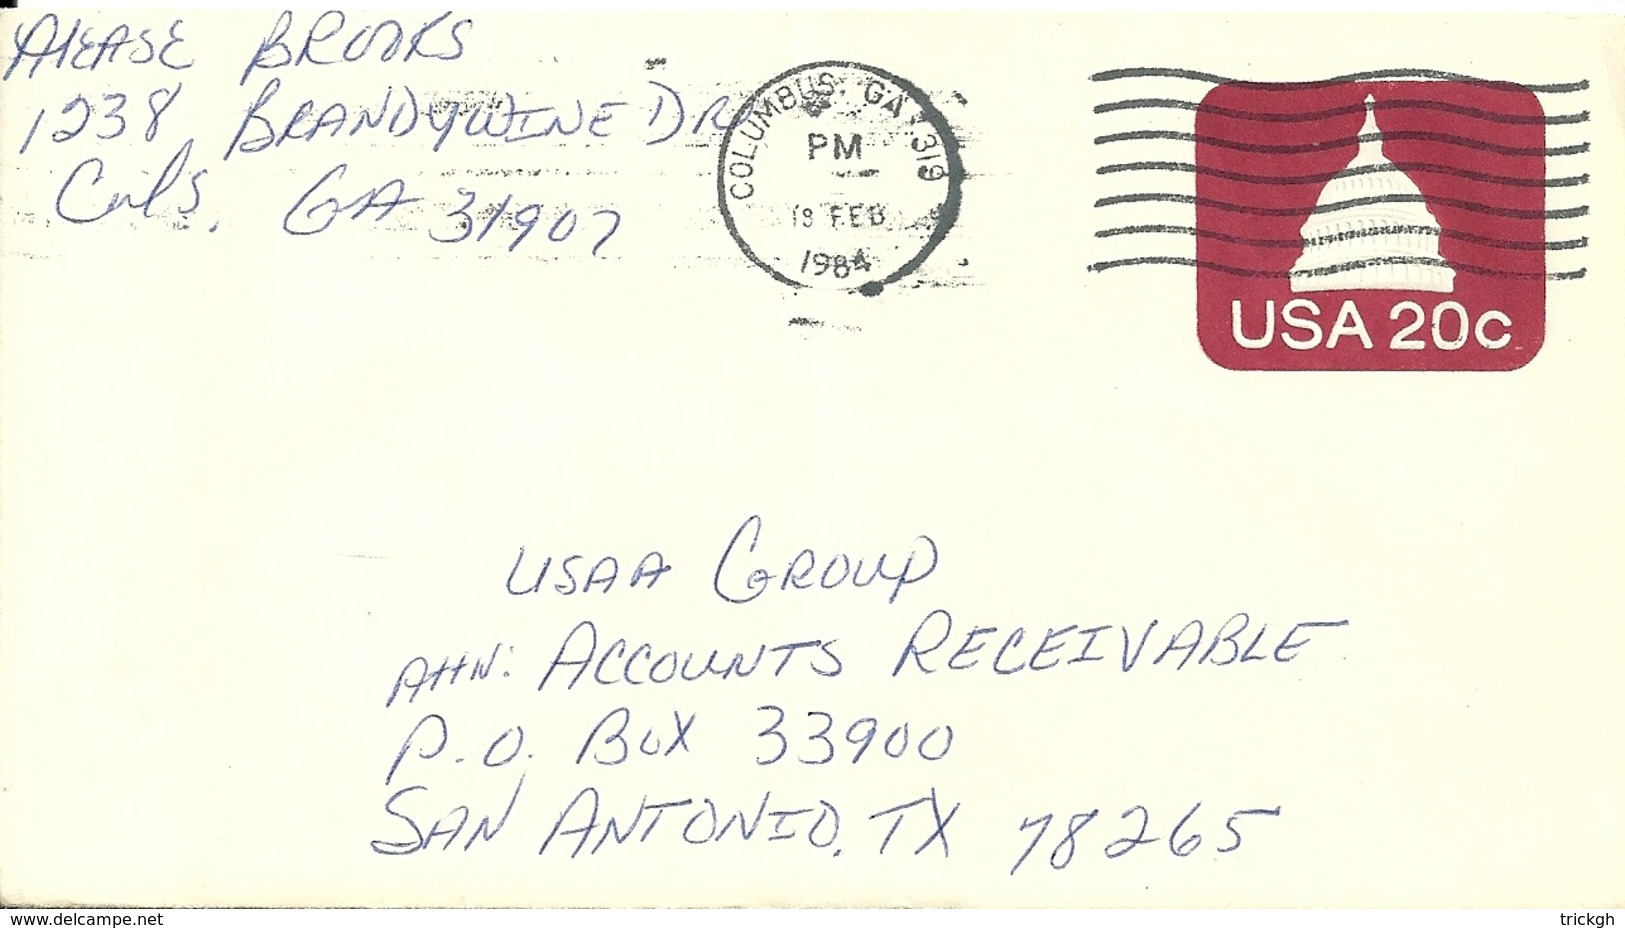 Alease Brooks
1238 Brandywine Dr
Cols, GA 31907
COLUMBUS, GA 319
PM
18 FEB
1984
USA 20c
USAA Group
Attn: Accounts Receivable
P.O. Box 33900
San Antonio, TX 78265
www.delcampe.net
trickgh